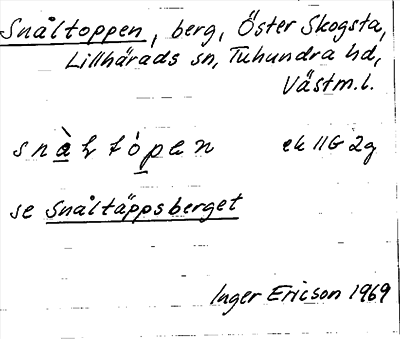 Snåltoppen, berg, Öster Skogsta,
Lillhärads sn, Tuhundra hd,
Västm.l.
snàɫtópen ek 11G 2g
se Snåltäppsberget
Inger Ericson 1969